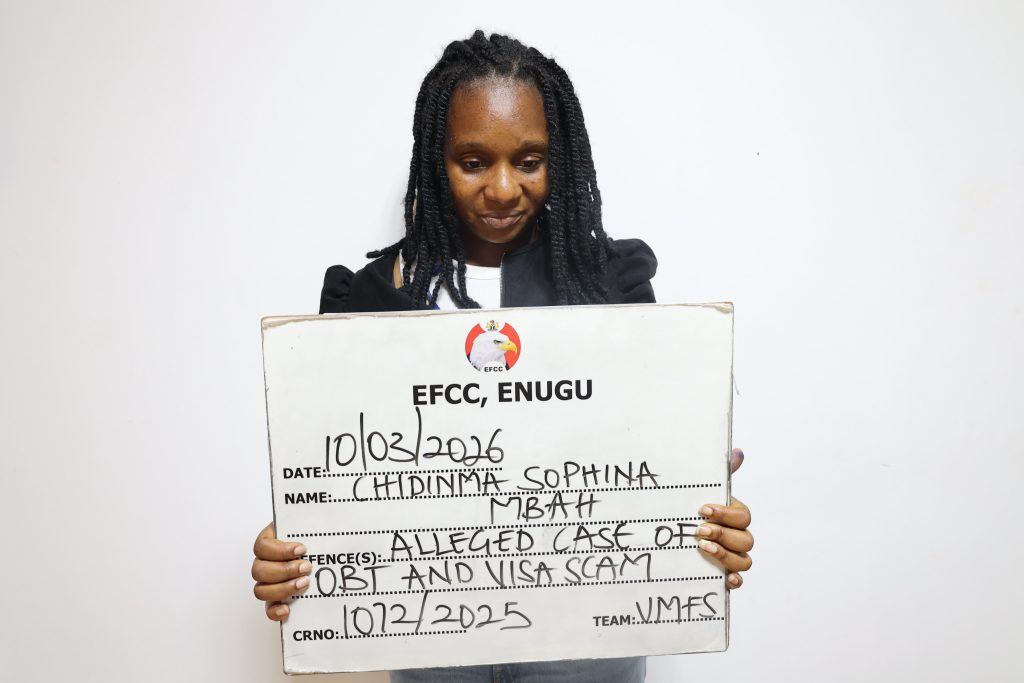 EFCC
EFCC, ENUGU
DATE: 10/03/2026
NAME: CHIDINMA SOPHINA
MBAH
FFENCE(S): ALLEGED CASE OF
OBT AND VISA SCAM
CRNO: 1072/2025 TEAM: VMFS